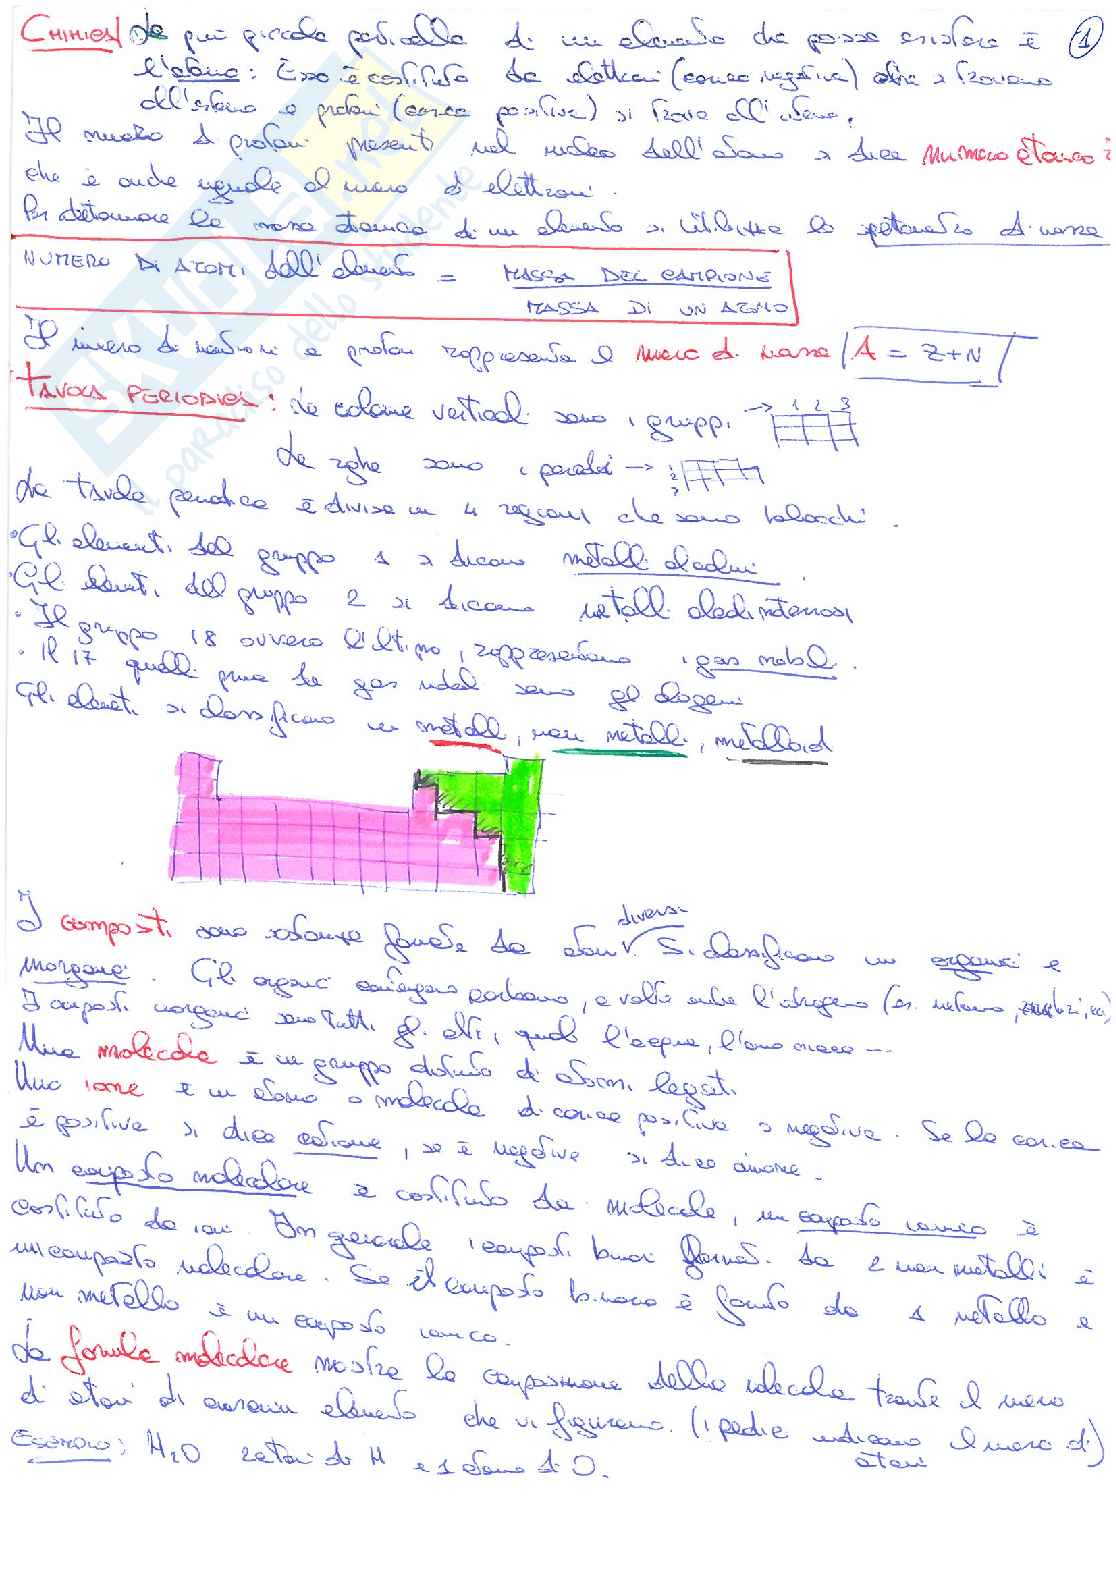 CHIMICA La più piccola particella di un elemento che possa esistere è 1
l'atomo: Esso è costituito da elettroni (carica negativa) che si trovano
all'esterno e protoni (carica positiva) si trova all'interno.
Il numero di protoni presenti nel nucleo dell'atomo si dice numero atomico Z
che è anche uguale al numero di elettroni.
Per determinare la massa atomica di un elemento si utilizza lo spettrometro di massa
NUMERO DI ATOMI dell'elemento = MASSA DEL CAMPIONE
MASSA DI UN ATOMO
Il numero di neutroni e protoni rappresenta il numero di massa A = Z+N
TAVOLA PERIODICA: Le colonne verticali sono i gruppi → 1 2 3
Le righe sono i periodi → 1 2 3
La tavola periodica è divisa in 4 regioni che sono blocchi.
• Gli elementi del gruppo 1 si dicono metalli alcalini.
• Gli elementi del gruppo 2 si dicono metalli alcalinoterrosi
• Il gruppo 18 ovvero l'ultimo, rappresentano i gas nobili.
• Il 17 quelli prima dei gas nobili sono gli alogeni
Gli elementi si classificano in metalli, non metalli, metalloidi
diversi
I composti sono sostanze formate da atomi. Si classificano in organici e
inorganici. Gli organici contengono carbonio, e volte anche l'idrogeno (es. metano, zuccheri, ecc)
I composti inorganici sono tutti gli altri, quali l'acqua, l'ammoniaca ---
Una molecola è un gruppo distinto di atomi legati.
Uno ione è un atomo o molecola di carica positiva o negativa. Se la carica
è positiva si dice catione, se è negativa si dice anione.
Un composto molecolare è costituito da molecole, un composto ionico è
costituito da ioni. In generale i composti binari formati da 2 non metalli è
un composto molecolare. Se il composto binario è formato da 1 metallo e
non metallo è un composto ionico.
La formula molecolare mostra la composizione della molecola tramite il numero
di atomi di ciascun elemento che vi figurano. (i pedici indicano il numero di)
atomi
ESEMPIO: H2O 2 atomi di H e 1 atomo di O.
SKUOLA.net
il paradiso dello studente